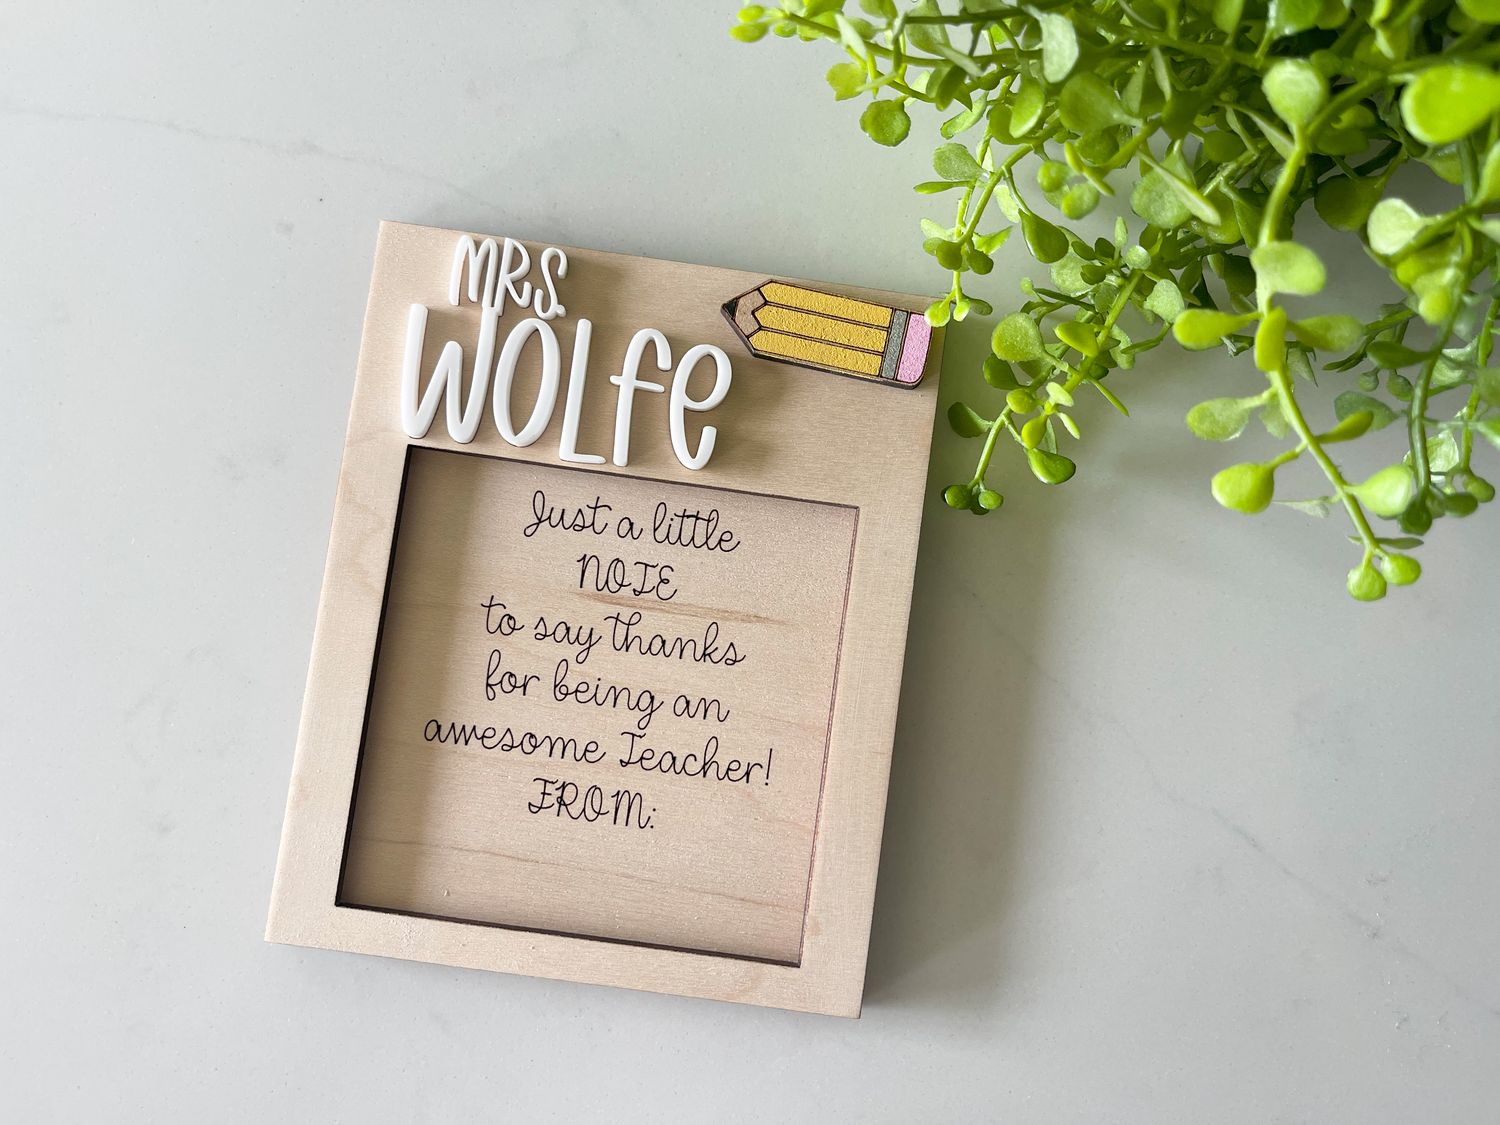 MRS.
WOLFE
Just a little
NOTE
to say thanks
for being an
awesome Teacher!
FROM: